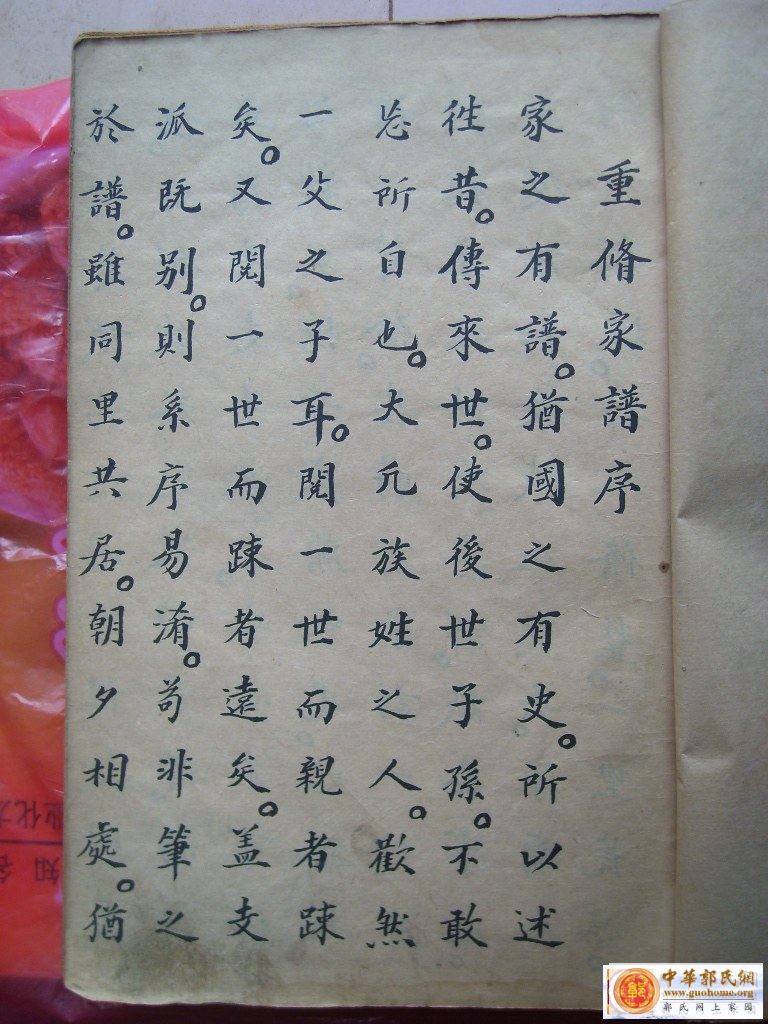 重脩家譜序
家之有譜。猶國之有史。所以述
徃昔。傳來世。使後世子孫。不敢
忘所自也。大凢族姓之人。歡然
一父之子耳。閱一世而親者踈
矣。又閱一世而踈者遠矣。盖支
派既别。則系序易淆。苟非筆之
於譜。雖同里共居。朝夕相處。猶
中華郭氏網
www.guohome.org
郭氏网上家园